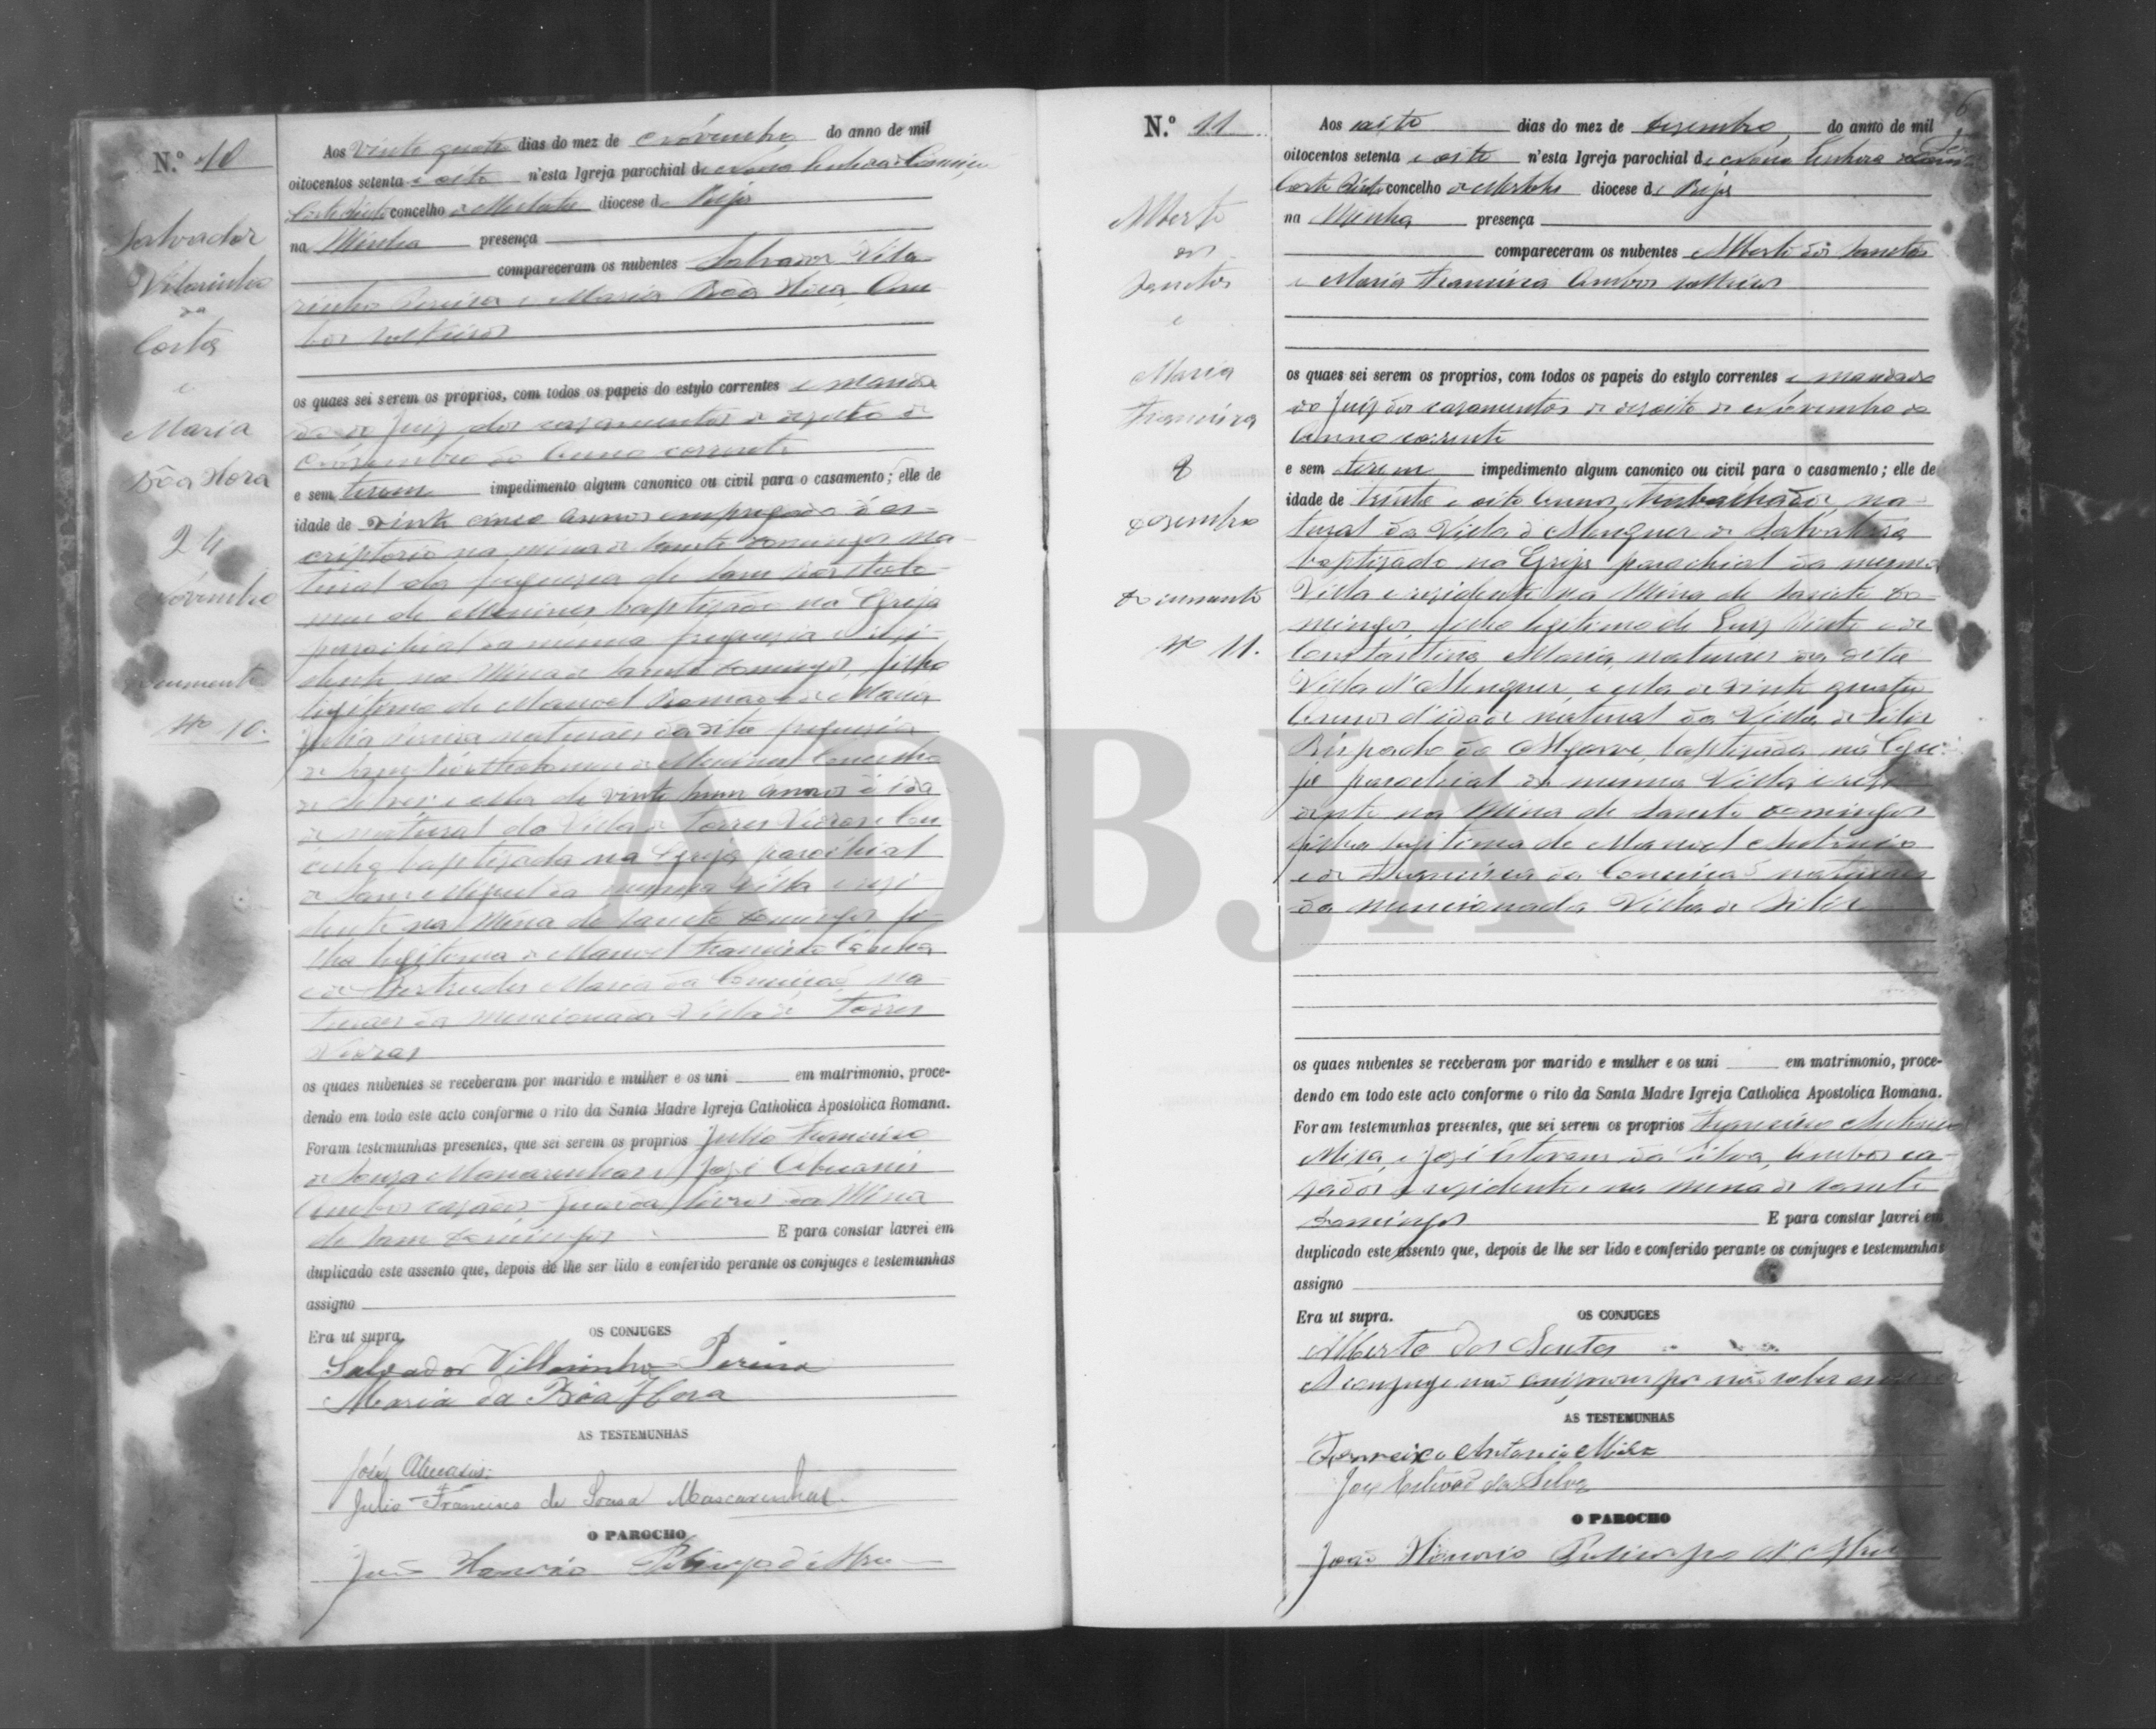 N.º 10
Salvador
Vilarinho
da
Costa
e
Maria
Bôa Hora
24
Novembro
Documento
Nº 10.
Aos vinte quatro dias do mez de Novembro do anno de mil
oitocentos setenta e oito n'esta Igreja parochial de Nossa Senhora da Conceição
Corte Pinto concelho de Mertola diocese de Beja
na Minha presença
compareceram os nubentes Salvador Vila-
rinho Pereira e Maria Bôa Hora Am-
bos solteiros
os quaes sei serem os proprios, com todos os papeis do estylo correntes e manda-
do do Juiz dos casamentos de dezoito de
Novembro do Anno corrente
e sem terem impedimento algum canonico ou civil para o casamento; elle de
idade de vinte cinco Annos empregado d'es-
criptorio na mina de Sancto Domingos na-
tural da freguezia de Sam Bartholo-
meu de Messines baptizado na Egreja
parochial da mesma freguezia e resi-
dente na Mina de Sancto Domingos, filho
legitimo de Manoel e de Maria
naturaes da dita freguezia
de Sam Bartholomeu de Messines Concelho
de Silves e ella de vinte hum Annos d'ida-
de natural da Villa de Torres Vedras
baptizada na Egreja parochial
de Sam Miguel da mesma Villa e resi-
dente na Mina de Sancto Domingos fi-
lha legitima de Manoel Francisco
e de Gertrudes Maria da Conceição na-
turaes da mencionada Villa de Torres
Vedras
os quaes nubentes se receberam por marido e mulher e os uni em matrimonio, proce-
dendo em todo este acto conforme o rito da Santa Madre Igreja Catholica Apostolica Romana.
Foram testemunhas presentes, que sei serem os proprios Julio Francisco
de Souza Mascarenhas e José
Ambos casados Guarda livros da Mina
de Sam Domingos E para constar lavrei em
duplicado este assento que, depois de lhe ser lido e conferido perante os conjuges e testemunhas
assigno
Era ut supra.
OS CONJUGES
Salvador Villarinho Pereira
Maria da Bôa Hora
AS TESTEMUNHAS
José
Julio Francisco de Sousa Mascarenhas
O PAROCHO
João Honorio Policarpo d'Abreu
6
N.º 11
Alberto
dos
Sanctos
e
Maria
Francisca
8
Dezembro
Documento
Nº 11.
Aos oito dias do mez de Dezembro do anno de mil
oitocentos setenta e oito n'esta Igreja parochial de Nossa Senhora da
Corte Pinto concelho de Mertola diocese de Beja
na Minha presença
compareceram os nubentes Alberto dos Sanctos
e Maria Francisca Ambos solteiros
os quaes sei serem os proprios, com todos os papeis do estylo correntes e mandado
do Juiz dos casamentos de dezoito de Novembro do
Anno corrente
e sem terem impedimento algum canonico ou civil para o casamento; elle de
idade de trinta e oito Annos, trabalhador, na-
tural da Villa d'Alenquer de
baptizado na Egreja parochial da mesma
Villa e rezidente na Mina de Sancto Do-
mingos filho legitimo de Luiz Pinto e de
Constantina Maria, naturaes da dita
Villa d'Alenquer, e ella de vinte quatro
Annos d'idade natural da Villa de
Bispado do Algarve, baptizada na Egre-
ja parochial da mesma Villa e rezi-
dente na Mina de Sancto Domingos
filha legitima de Manoel Antonio
e de Francisca da Conceição naturaes
da mencionada Villa de
os quaes nubentes se receberam por marido e mulher e os uni em matrimonio, proce-
dendo em todo este acto conforme o rito da Santa Madre Igreja Catholica Apostolica Romana.
Foram testemunhas presentes, que sei serem os proprios Francisco Antonio
Mira, e José Estevam da Silva, Ambos ca-
zados e rezidentes na mina de Sancto
Domingos E para constar lavrei em
duplicado este assento que, depois de lhe ser lido e conferido perante os conjuges e testemunhas
assigno
Era ut supra.
OS CONJUGES
Alberto dos Santos
A conjuge não assignou por não saber escrever
AS TESTEMUNHAS
Francisco Antonio Mira
José Estevão da Silva
O PAROCHO
João Honorio Policarpo d'Abreu
ADBJA